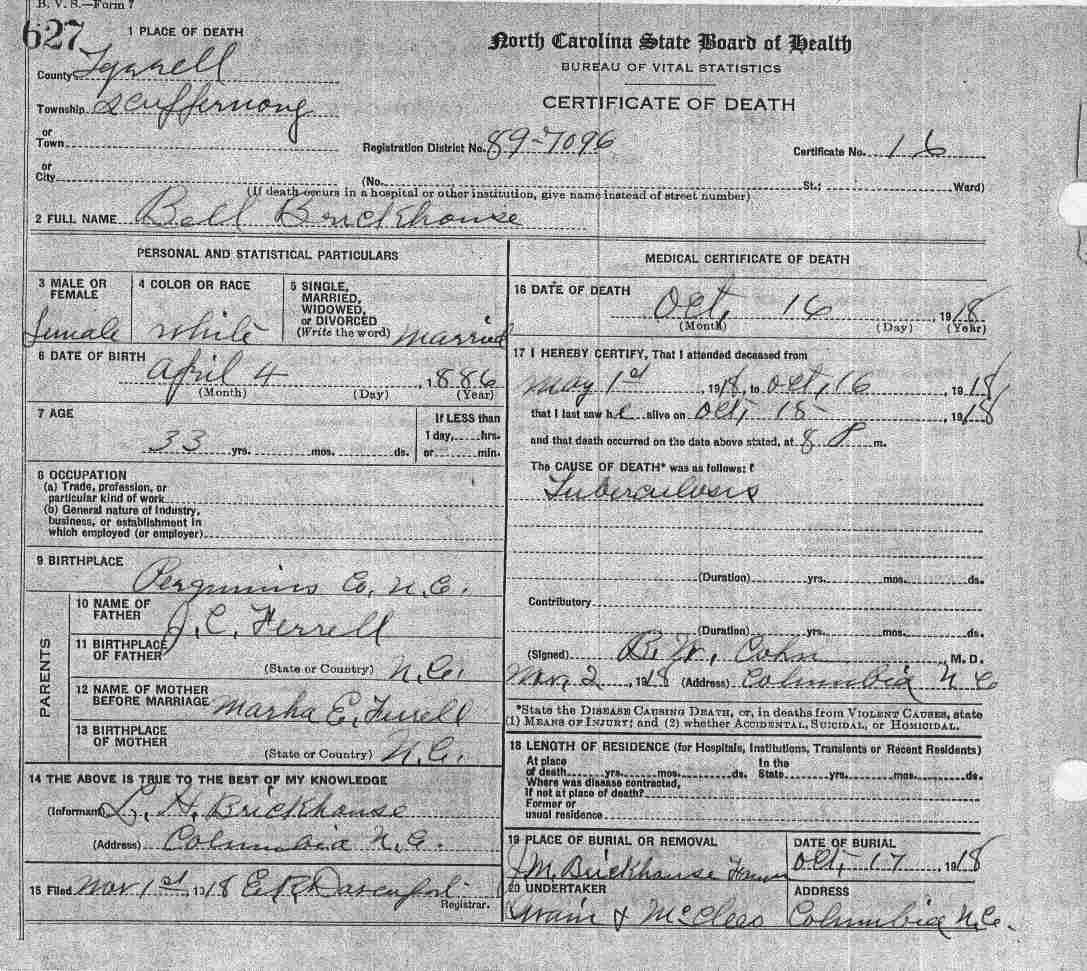 B. V. S.—Form 7
627
1 PLACE OF DEATH
County Tyrrell
Township Scuppernong
or
Town
or
City
North Carolina State Board of Health
BUREAU OF VITAL STATISTICS
CERTIFICATE OF DEATH
Registration District No. 89-7096
Certificate No. 16
(No. St.; Ward)
(If death occurs in a hospital or other institution, give name instead of street number)
2 FULL NAME Bell Brickhouse
PERSONAL AND STATISTICAL PARTICULARS
3 MALE OR FEMALE
female
4 COLOR OR RACE
white
5 SINGLE,
MARRIED,
WIDOWED,
or DIVORCED
(Write the word) married
6 DATE OF BIRTH
April 4, 1886
(Month) (Day) (Year)
7 AGE
33 yrs. mos. ds.
If LESS than
1 day, hrs.
or min.
8 OCCUPATION
(a) Trade, profession, or
particular kind of work
(b) General nature of industry,
business, or establishment in
which employed (or employer)
9 BIRTHPLACE
Perquimins Co, N.C.
PARENTS
10 NAME OF
FATHER J. C. Ferrell
11 BIRTHPLACE
OF FATHER
(State or Country) N.C.
12 NAME OF MOTHER
BEFORE MARRIAGE Marha E. Ferrell
13 BIRTHPLACE
OF MOTHER
(State or Country) N.C.
14 THE ABOVE IS TRUE TO THE BEST OF MY KNOWLEDGE
(Informant) L. H. Brickhouse
(Address) Columbia N.C.
15 Filed Nov 1st, 1918 E.R. Davenport
Registrar.
MEDICAL CERTIFICATE OF DEATH
16 DATE OF DEATH
Oct, 16 1918
(Month) (Day) (Year)
17 I HEREBY CERTIFY, That I attended deceased from
May 1st, 1918, to Oct, 16, 1918
that I last saw he alive on Oct, 15, 1918
and that death occurred on the date above stated, at 8 P m.
The CAUSE OF DEATH* was as follows:
Tuberculosis
(Duration) yrs. mos. ds.
Contributory
(Duration) yrs. mos. ds.
(Signed) B. W. Cohn, M. D.
Nov, 2, 1918 (Address) Columbia N C
*State the DISEASE CAUSING DEATH, or, in deaths from VIOLENT CAUSES, state
(1) MEANS OF INJURY; and (2) whether ACCIDENTAL, SUICIDAL, or HOMICIDAL.
18 LENGTH OF RESIDENCE (for Hospitals, Institutions, Transients or Recent Residents)
At place
of death yrs. mos. ds.
In the
State yrs. mos. ds.
Where was disease contracted,
If not at place of death?
Former or
usual residence
19 PLACE OF BURIAL OR REMOVAL
J M. Brickhouse
DATE OF BURIAL
Oct, 17 1918
20 UNDERTAKER
& McClees
ADDRESS
Columbia N.C.